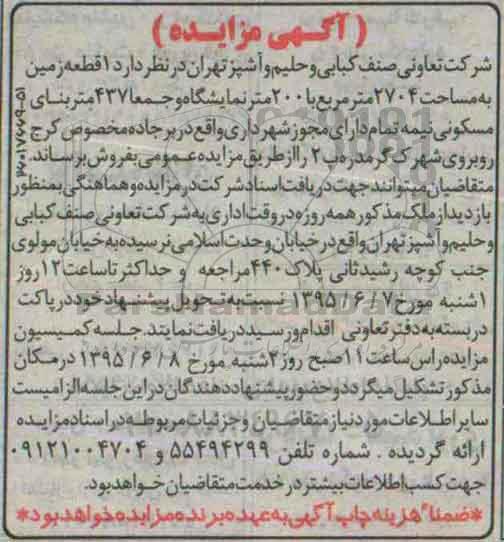 ( آگهی مزایده )
شرکت تعاونی صنف کبابی و حلیم و آشپز تهران در نظر دارد ۱ قطعه زمین
به مساحت ۲۷۰۴ متر مربع با ۲۰۰ متر نمایشگاه و جمعا ۴۳۷ متر بنای
مسکونی نیمه تمام دارای مجوز شهرداری واقع در بر جاده مخصوص کرج
روبروی شهرک گرمدره ب ۲ را از طریق مزایده عمومی بفروش برساند.
متقاضیان میتوانند جهت دریافت اسناد شرکت در مزایده و هماهنگی بمنظور
بازدید از ملک مذکور همه روزه در وقت اداری به شرکت تعاونی صنف کبابی
و حلیم و آشپز تهران واقع در خیابان وحدت اسلامی نرسیده به خیابان مولوی
جنب کوچه رشید ثانی پلاک ۴۴۰ مراجعه و حداکثر تا ساعت ۱۲ روز
۱شنبه مورخ ۱۳۹۵/۶/۷ نسبت به تحویل پیشنهاد خود در پاکت
دربسته به دفتر تعاونی اقدام و رسید دریافت نمایند. جلسه کمیسیون
مزایده راس ساعت ۱۱ صبح روز ۲شنبه مورخ ۱۳۹۵/۶/۸ در مکان
مذکور تشکیل میگردد و حضور پیشنهاد دهندگان در این جلسه الزامیست
سایر اطلاعات مورد نیاز متقاضیان و جزئیات مربوطه در اسناد مزایده
ارائه گردیده . شماره تلفن ۵۵۴۹۴۲۹۹ و ۰۹۱۲۱۰۰۴۷۰۴
جهت کسب اطلاعات بیشتر در خدمت متقاضیان خواهد بود.
*ضمنا" هزینه چاپ آگهی به عهده برنده مزایده خواهد بود*